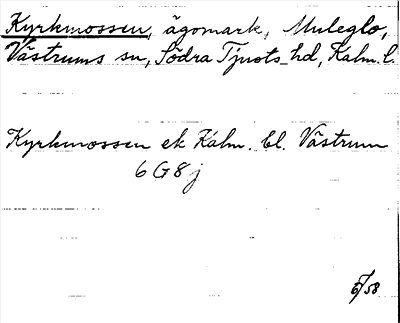 Kyrkmossen, ägomark, Muleglo,
Västrums sn, Södra Tjusts hd, Kalm. l.
Kyrkmossen ek Kalm. bl. Västrum
6 G 8 j
6/58